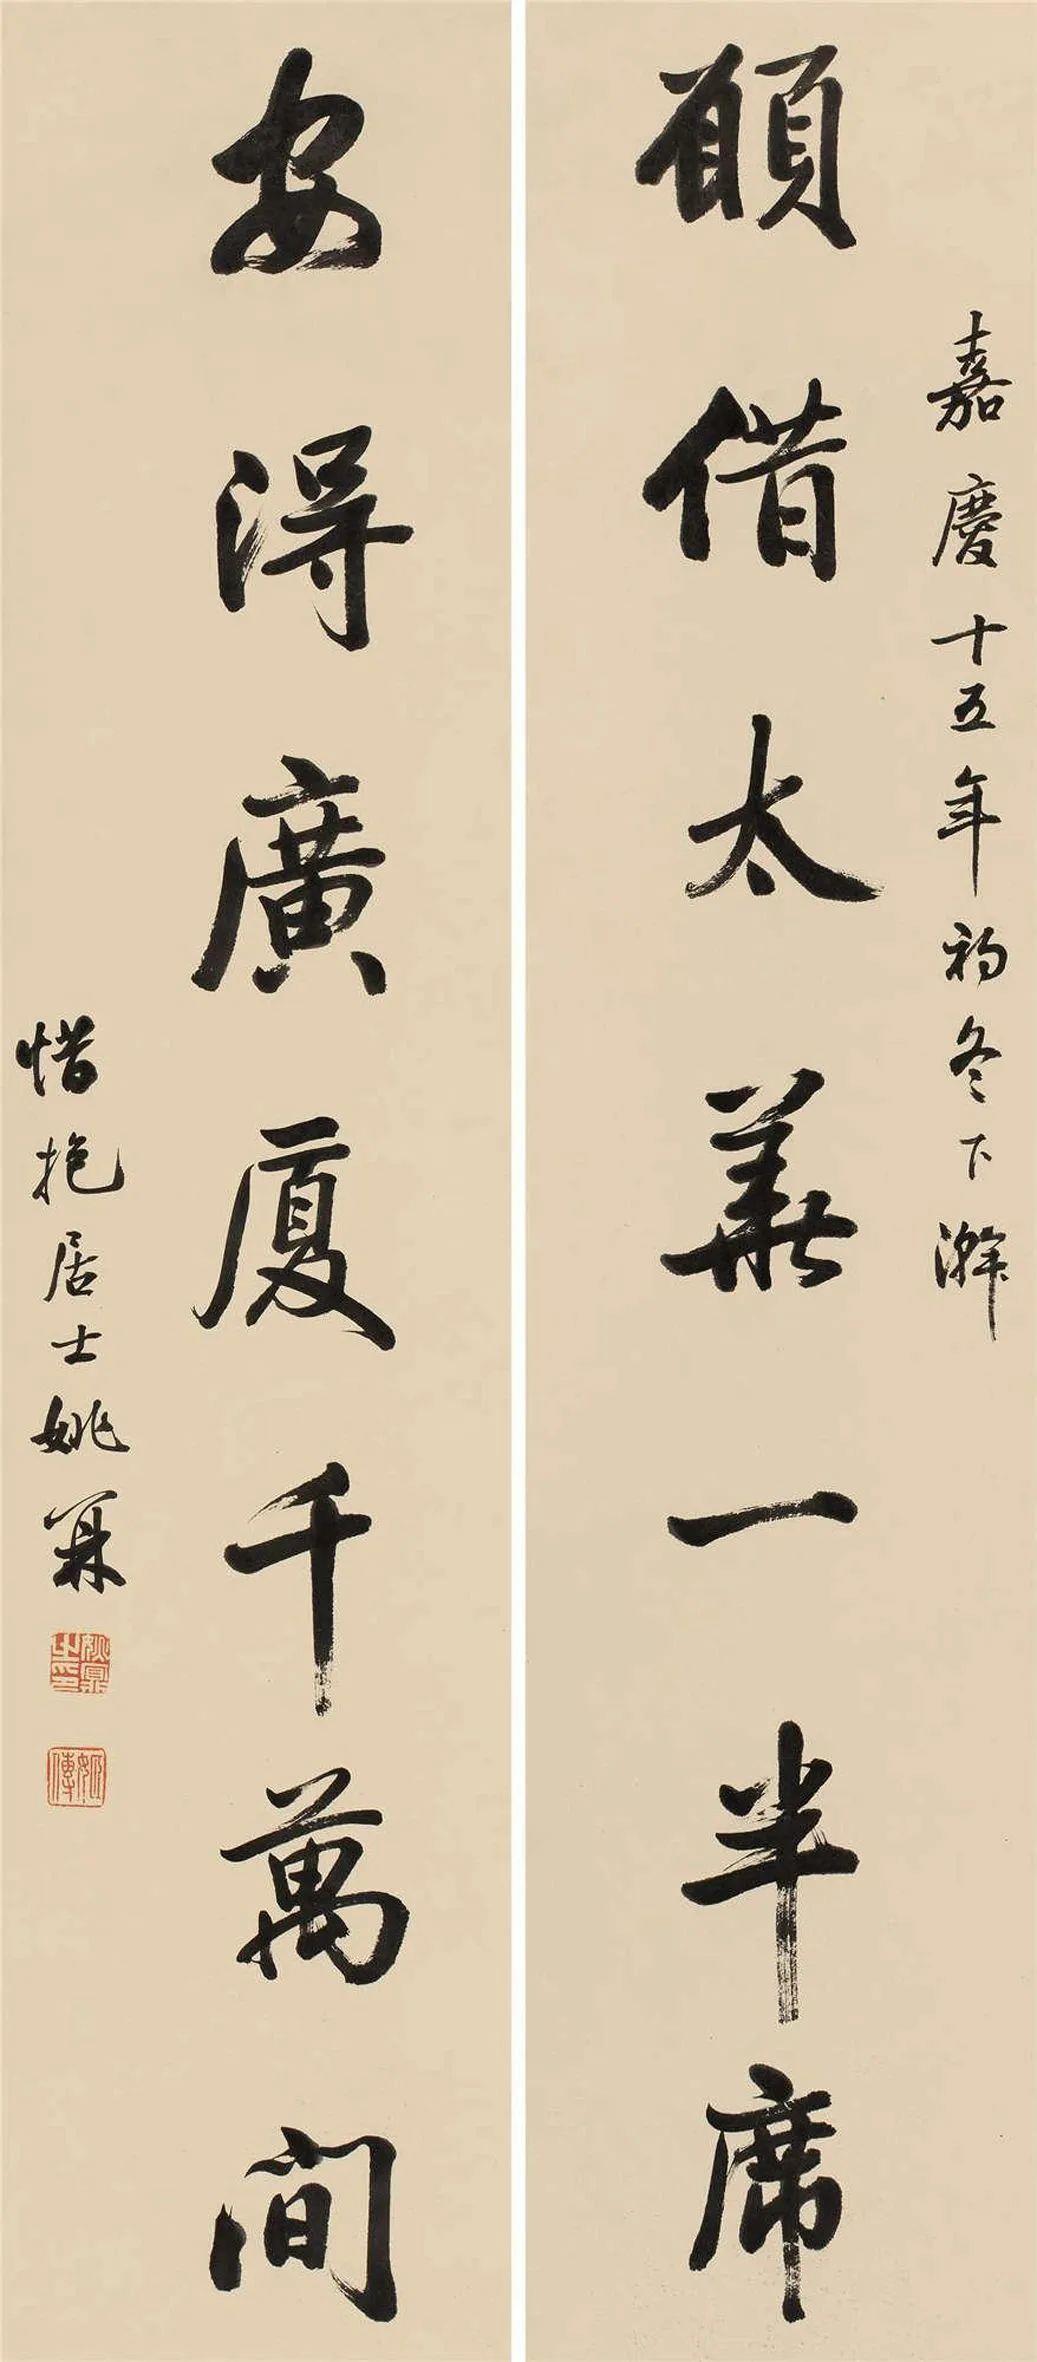 嘉慶十五年初冬下澣
願借太華一半席
安得廣廈千萬間
惜抱居士姚鼐
姚鼐之印
姬傳